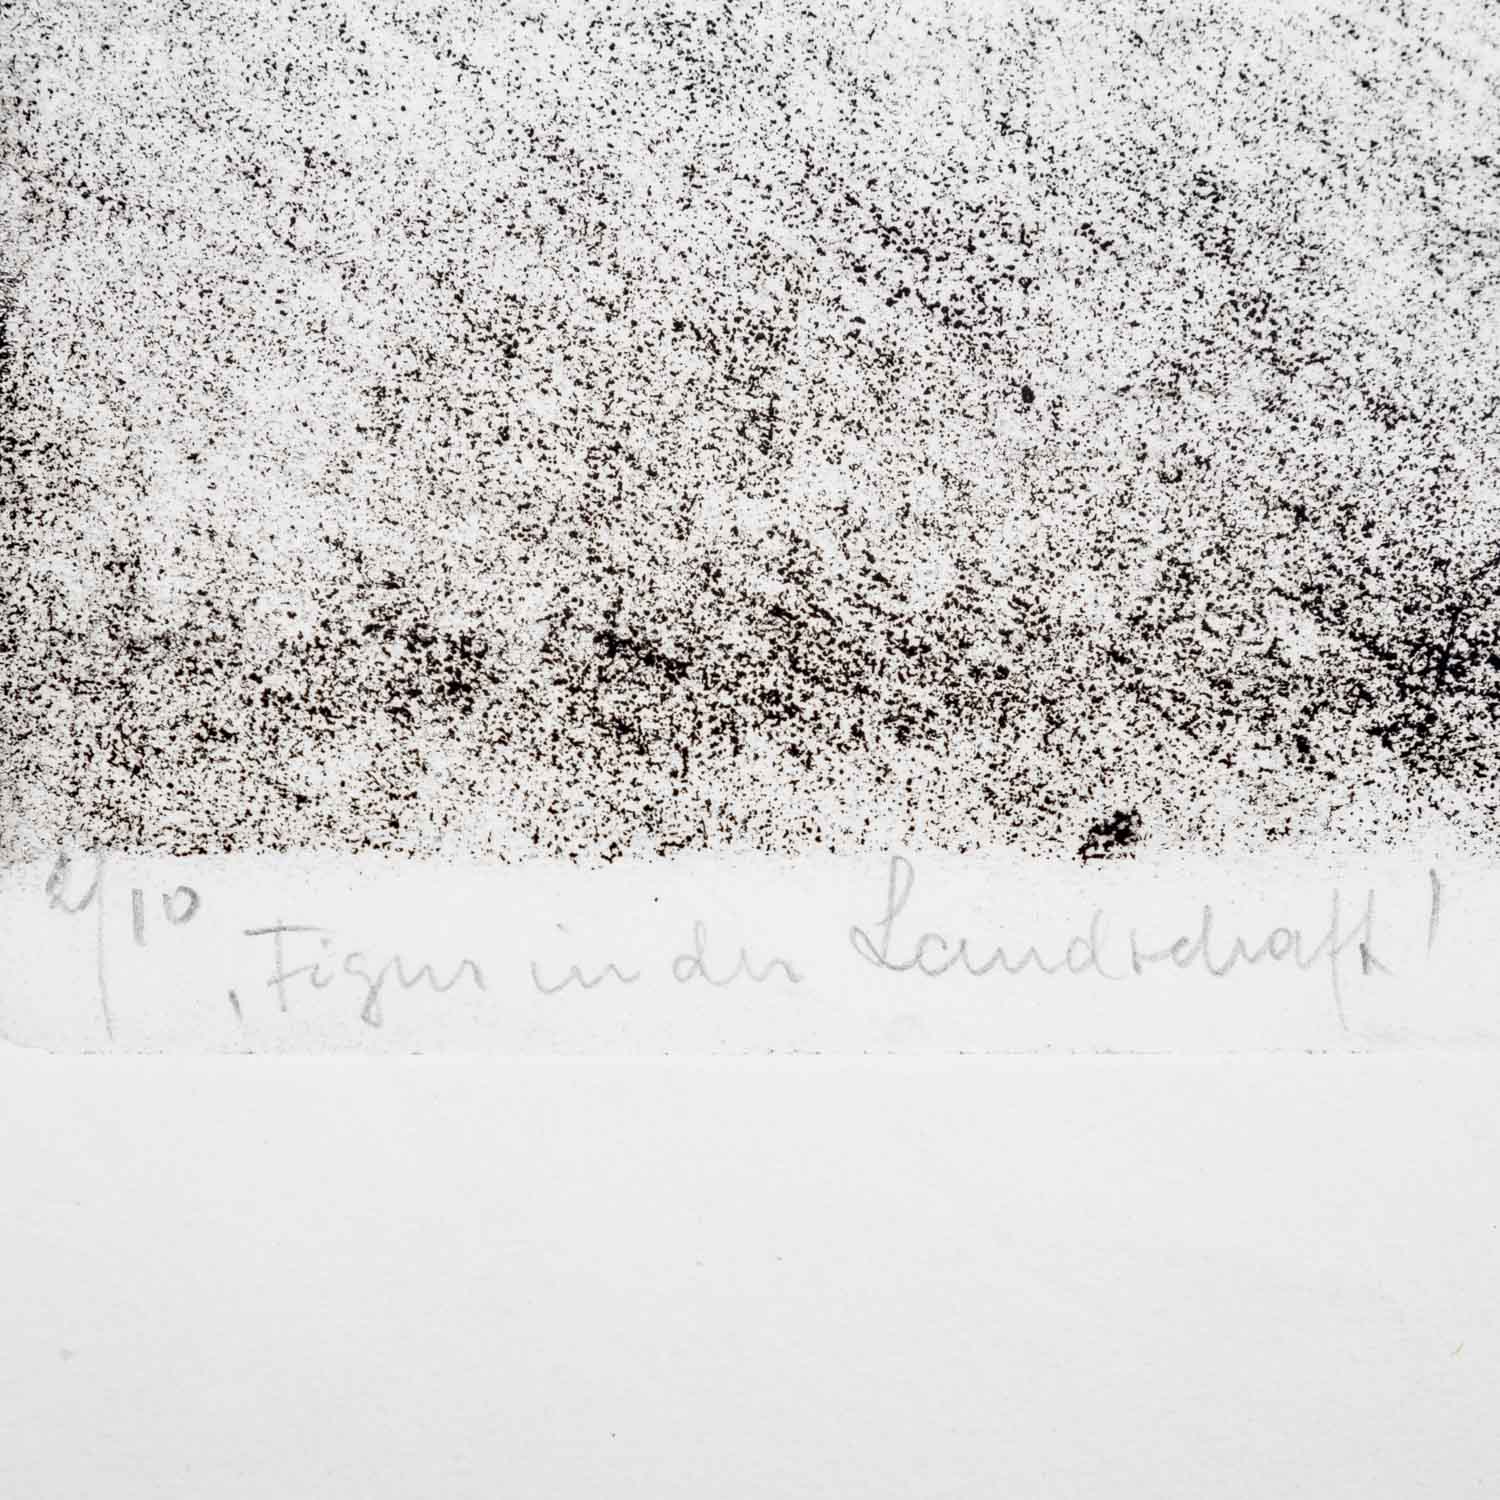 2/10 ‚Figur in der Landschaft'